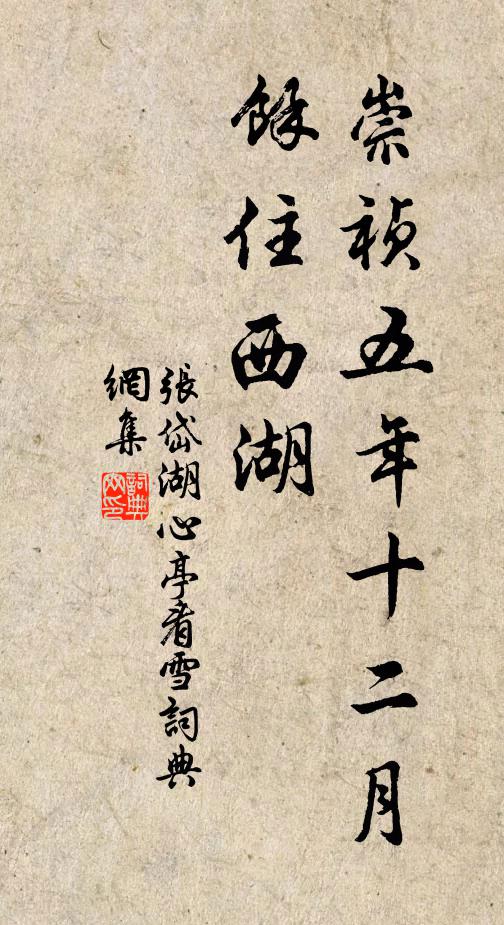 崇祯五年十二月
餘住西湖
張岱湖心亭看雪詞典
網集
詞典
网印